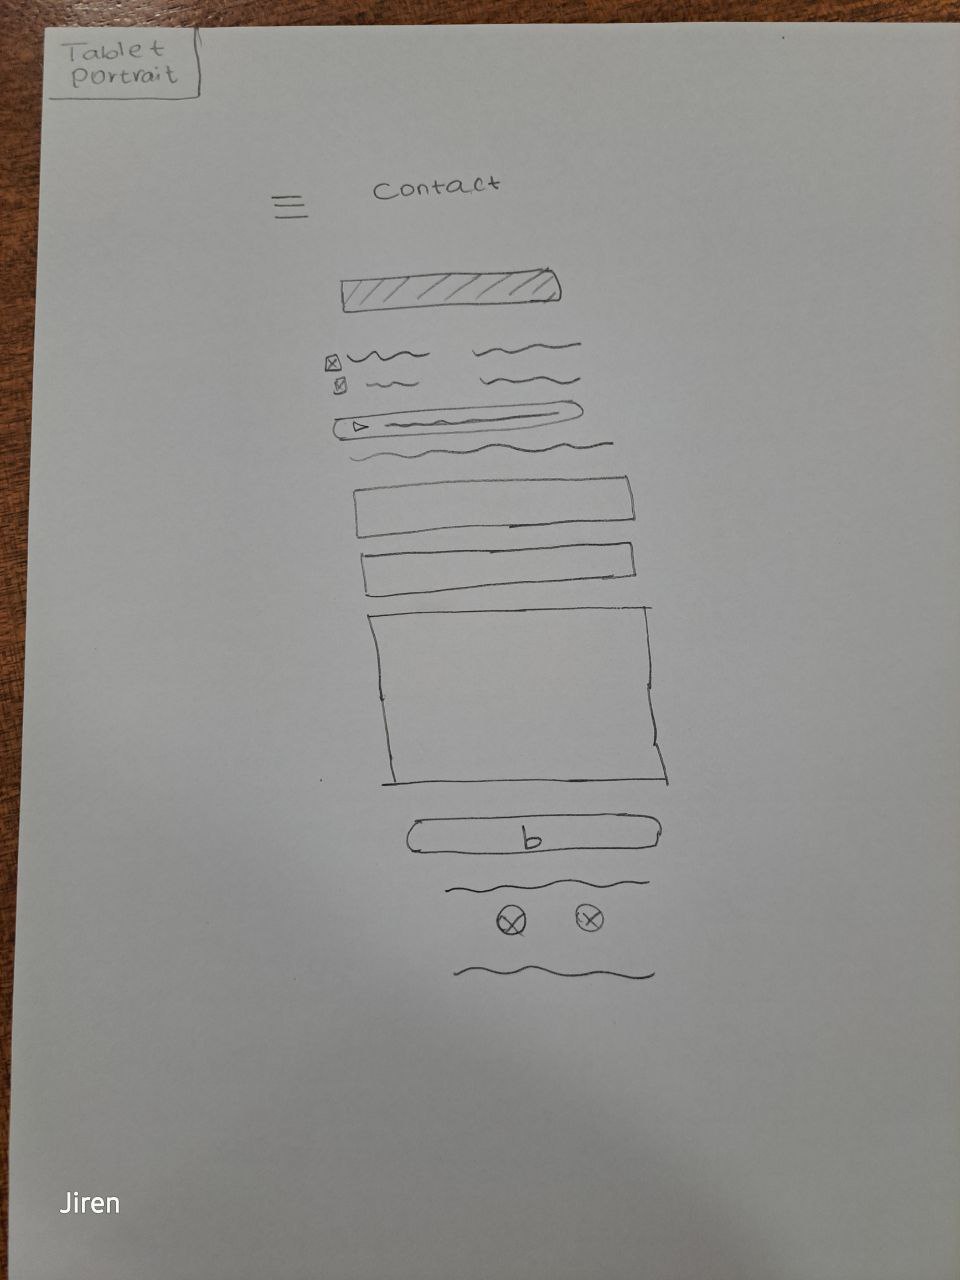 Tablet
Portrait
Contact
b
Jiren